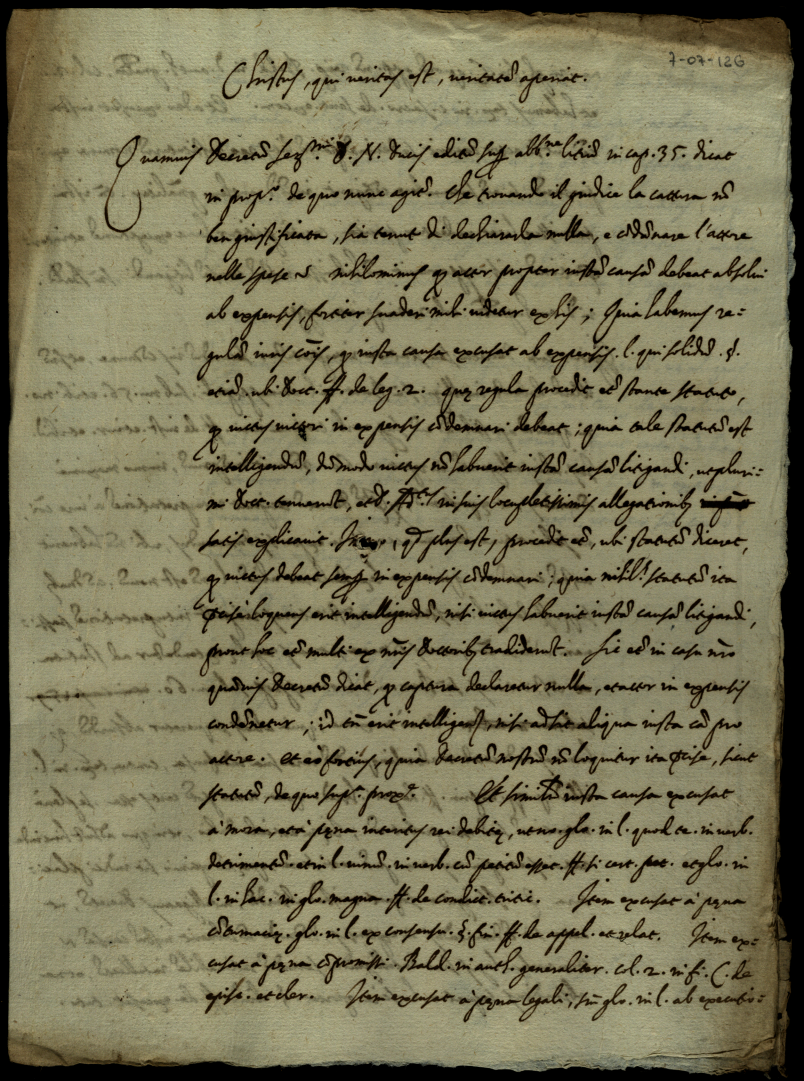 7-07-126
Christus, qui veritas est, veritatē aperiat.
Quamuis Decretū Ser.mi D. N. Ducis editū sup abb.ne litiū in cap. 35. dicat
in prop.o de quo nunc agit. Che trouando il giudice la cattura nō
ben giustificata, sia tenut di dechiararla nulla, e cōdēnare l'attore
nelle spese nihilominus q actor propter iustā causā debeat absolui
ab expensis, fortiter suaderi mihi videtur ex his; Quia habemus re-
gulā iuris cōis, q iusta causa excusat ab expensis. l. qui solidū. §.
etiā. ubi Doct. ff. de leg. 2. quę regula procedit etē stante statuto,
q victus victori in expensis cōdemnari debeat; quia tale statutū est
intelligendū, dūmodo victus nō habuerit iustā causā litigandi, ut pluri-
mi Doct. tenuerūt, et D. in suis locupletissimis allegationib
satis explicauit. , qd plus est, procedit etē, ubi statutū diceret,
q victus debeat semp in expensis cōdemnari; quia nihil. statutū ita
pcise loquens erit intelligendū, nisi victus habuerit iustā causā litigandi,
prout hoc etē multi ex nris Doctorib tradiderūt. Sic etē in casu nro
quāuis Decretū dicat, q captura declaretur nulla, et actor in expensis
condēnetur; id tn erit intelligend, nisi adsit aliqua iusta cā pro
actore. et eo fortius, quia decretū nostrū nō loquitur ita pcise, sicut
statutū, de quo sup. prox.o Et similiter iusta causa excusat
à mora, et à pęna interitus rei debitę, ut no. glo. in l. quod te. in verb.
detrimentū. et in l. vinū. in verb. cū petitū esset. ff. si cert. pet. et glo. in
l. in hac. in glo. magna. ff. de condict. tritic. Item excusat à pęna
cōtumacię. glo. in l. ex consensu. §. fin. ff. de appel. et relat. Item ex-
cusat à pęna cōpromissi. Bald. in auth. generaliter. col. 2. in fi. C. de
epis. et cler. Item excusat à pęna legali, sm glo. in l. ab executio-